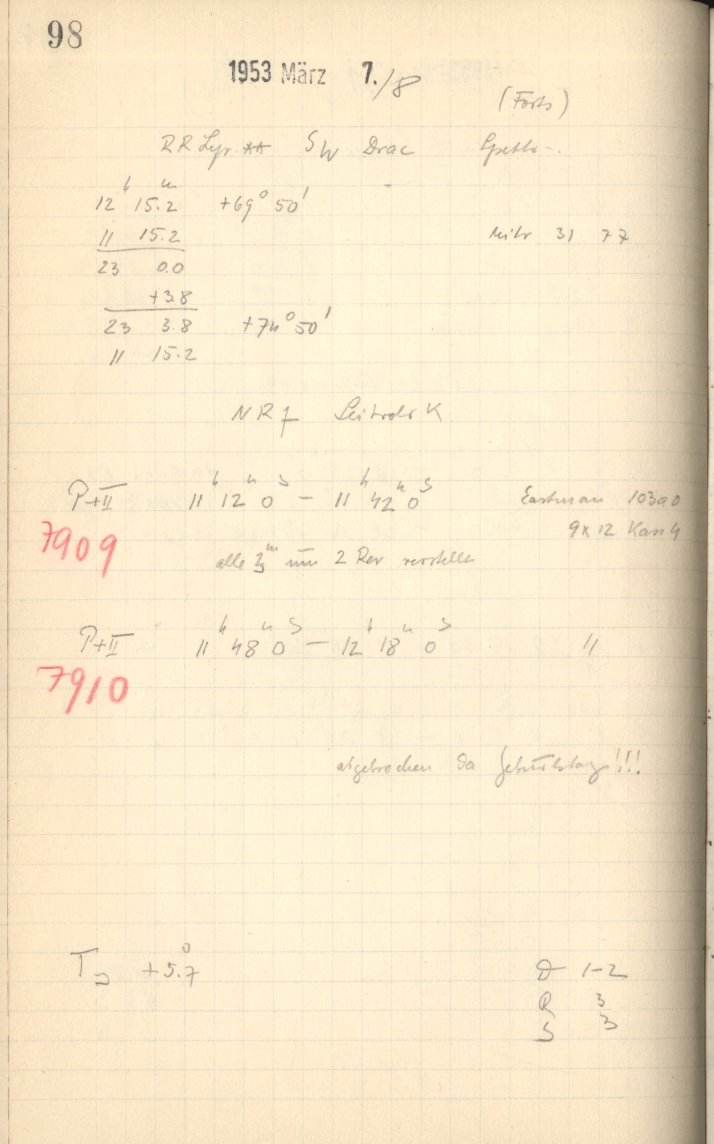 98
1953 März 7./8
(Forts)
RR Lyr ** SW Drac Spektr.
h m
12 15.2 +69° 50'
11 15.2 Mikr 31 77
23 0.0
+3.8
23 3.8 +74° 50'
11 15.2
NR 7 Leitrohr K
P+II 11h 12m 0s – 11h 42m 0s Eastman 103aO
9x12 Kass 4
7909
alle 3m um 2 Rev verstellt
P+II 11h 48m 0s – 12h 18m 0s "
7910
abgebrochen da Geburtstag!!!
T +5.°7
D 1–2
R 3
S 3